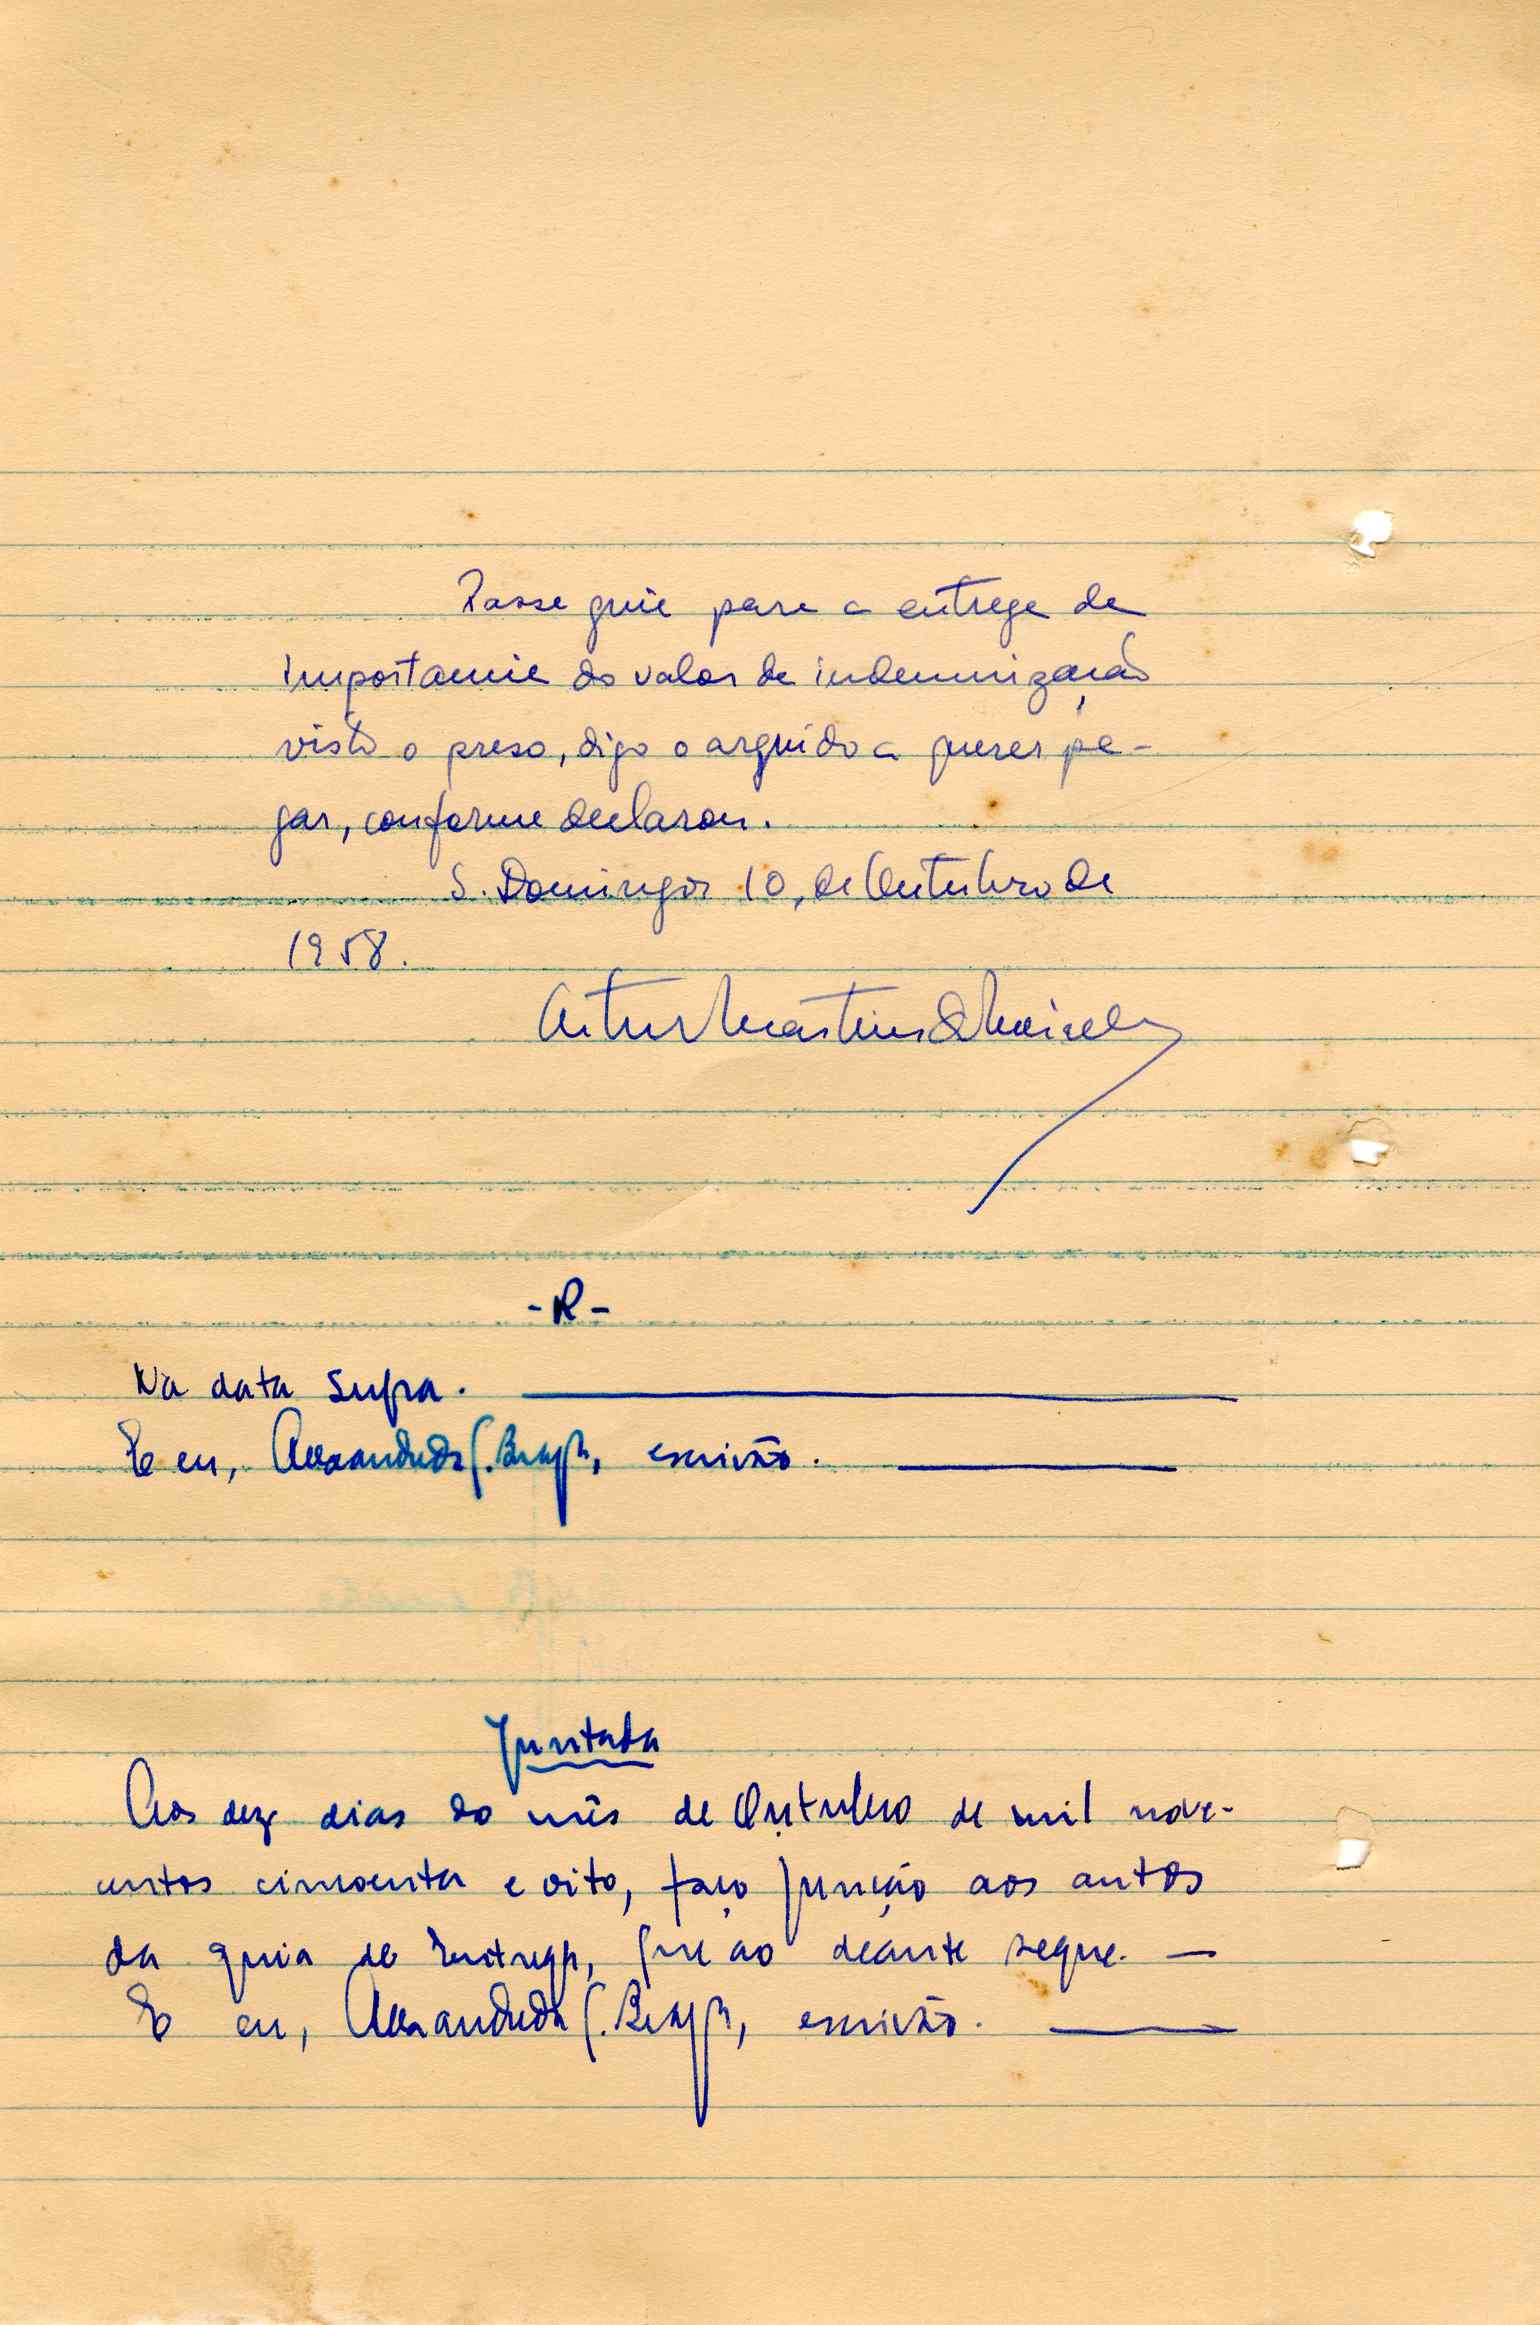 Passe guia para a entrega da
importancia do valor da indemnização
visto o preso, digo o arguido a querer pa-
gar, conforme declarou.
S. Domingos 10, de Outubro de
1958.
Artur Martins de
- R -
Na data supra.
E eu, escrivão.
Juntada
Aos dez dias do mês de Outubro de mil nove-
centos cincoenta e oito, faço junção aos autos
da guia de entrega, que ao deante segue. —
E eu, escrivão.